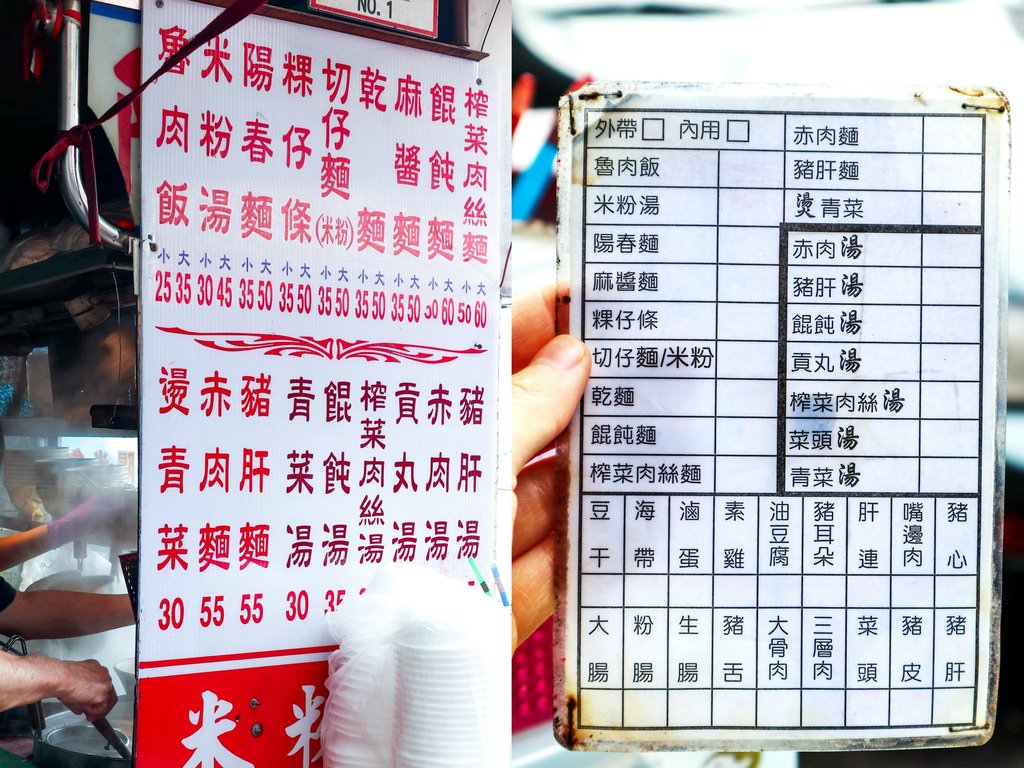 NO.1
魯肉飯 米粉湯 陽春麵 粿仔條 切仔麵(米粉) 乾麵 麻醬麵 餛飩麵 榨菜肉絲麵
小大 小大 小大 小大 小大 小大 小大 小大 小大
25 35 30 45 35 50 35 50 35 50 35 50 35 50 50 60 50 60
燙青菜 赤肉麵 豬肝麵 青菜湯 餛飩湯 榨菜肉絲湯 貢丸湯 赤肉湯 豬肝湯
30 55 55 30
米粉
外帶□ 內用□ 赤肉麵
魯肉飯 豬肝麵
米粉湯 燙青菜
陽春麵 赤肉湯
麻醬麵 豬肝湯
粿仔條 餛飩湯
切仔麵/米粉 貢丸湯
乾麵 榨菜肉絲湯
餛飩麵 菜頭湯
榨菜肉絲麵 青菜湯
豆干 海帶 滷蛋 素雞 油豆腐 豬耳朵 肝連 嘴邊肉 豬心
大腸 粉腸 生腸 豬舌 大骨肉 三層肉 菜頭 豬皮 豬肝